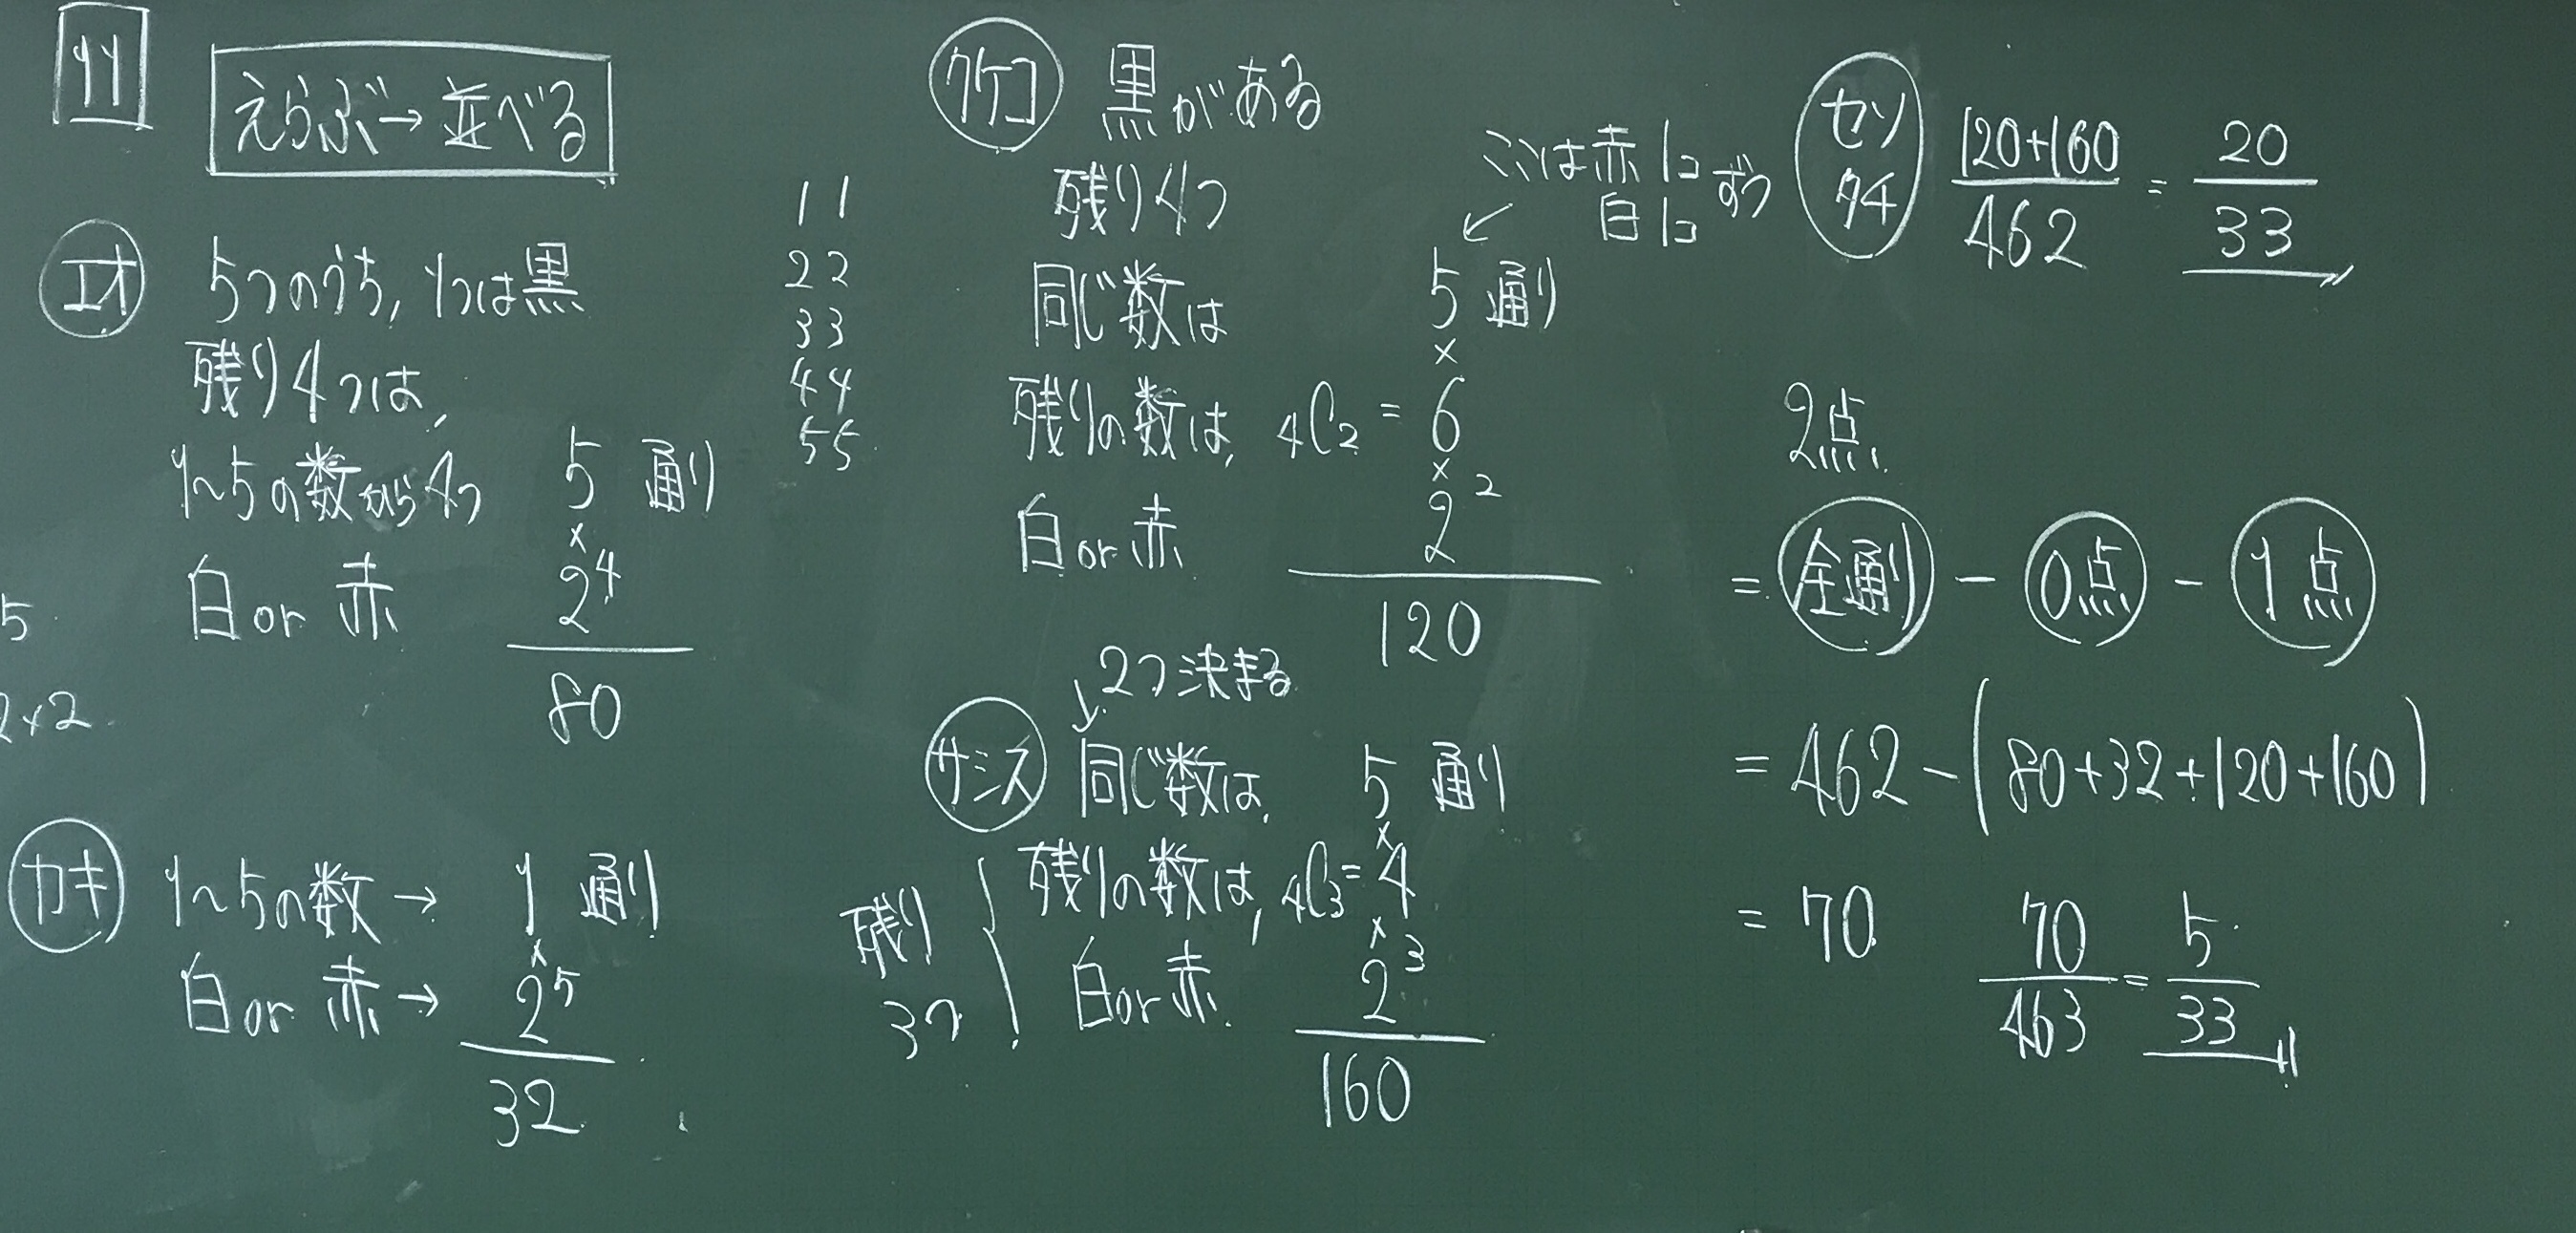 えらぶ→並べる
エオ 5つのうち, 1つは黒
残り4つは,
1~5の数から4つ 5 通り
×
白 or 赤 2^4
80
5
2×2
カキ 1~5の数 → 1 通り
×
白 or 赤 → 2^5
32
11
22
33
44
55
クケコ 黒がある
残り4つ
ここは赤1コ
白1コ ずつ
同じ数は 5 通り
×
残りの数は, 4C2 = 6
×
白 or 赤 2^2
120
2つ決まる
サシス 同じ数は, 5 通り
×
残りの数は, 4C3 = 4
×
白 or 赤 2^3
残り
3つ
160
セソ
タチ
120+160/462 = 20/33
2点
= 全通り - 0点 - 1点
= 462 - (80+32+120+160)
= 70
70/463 = 5/33